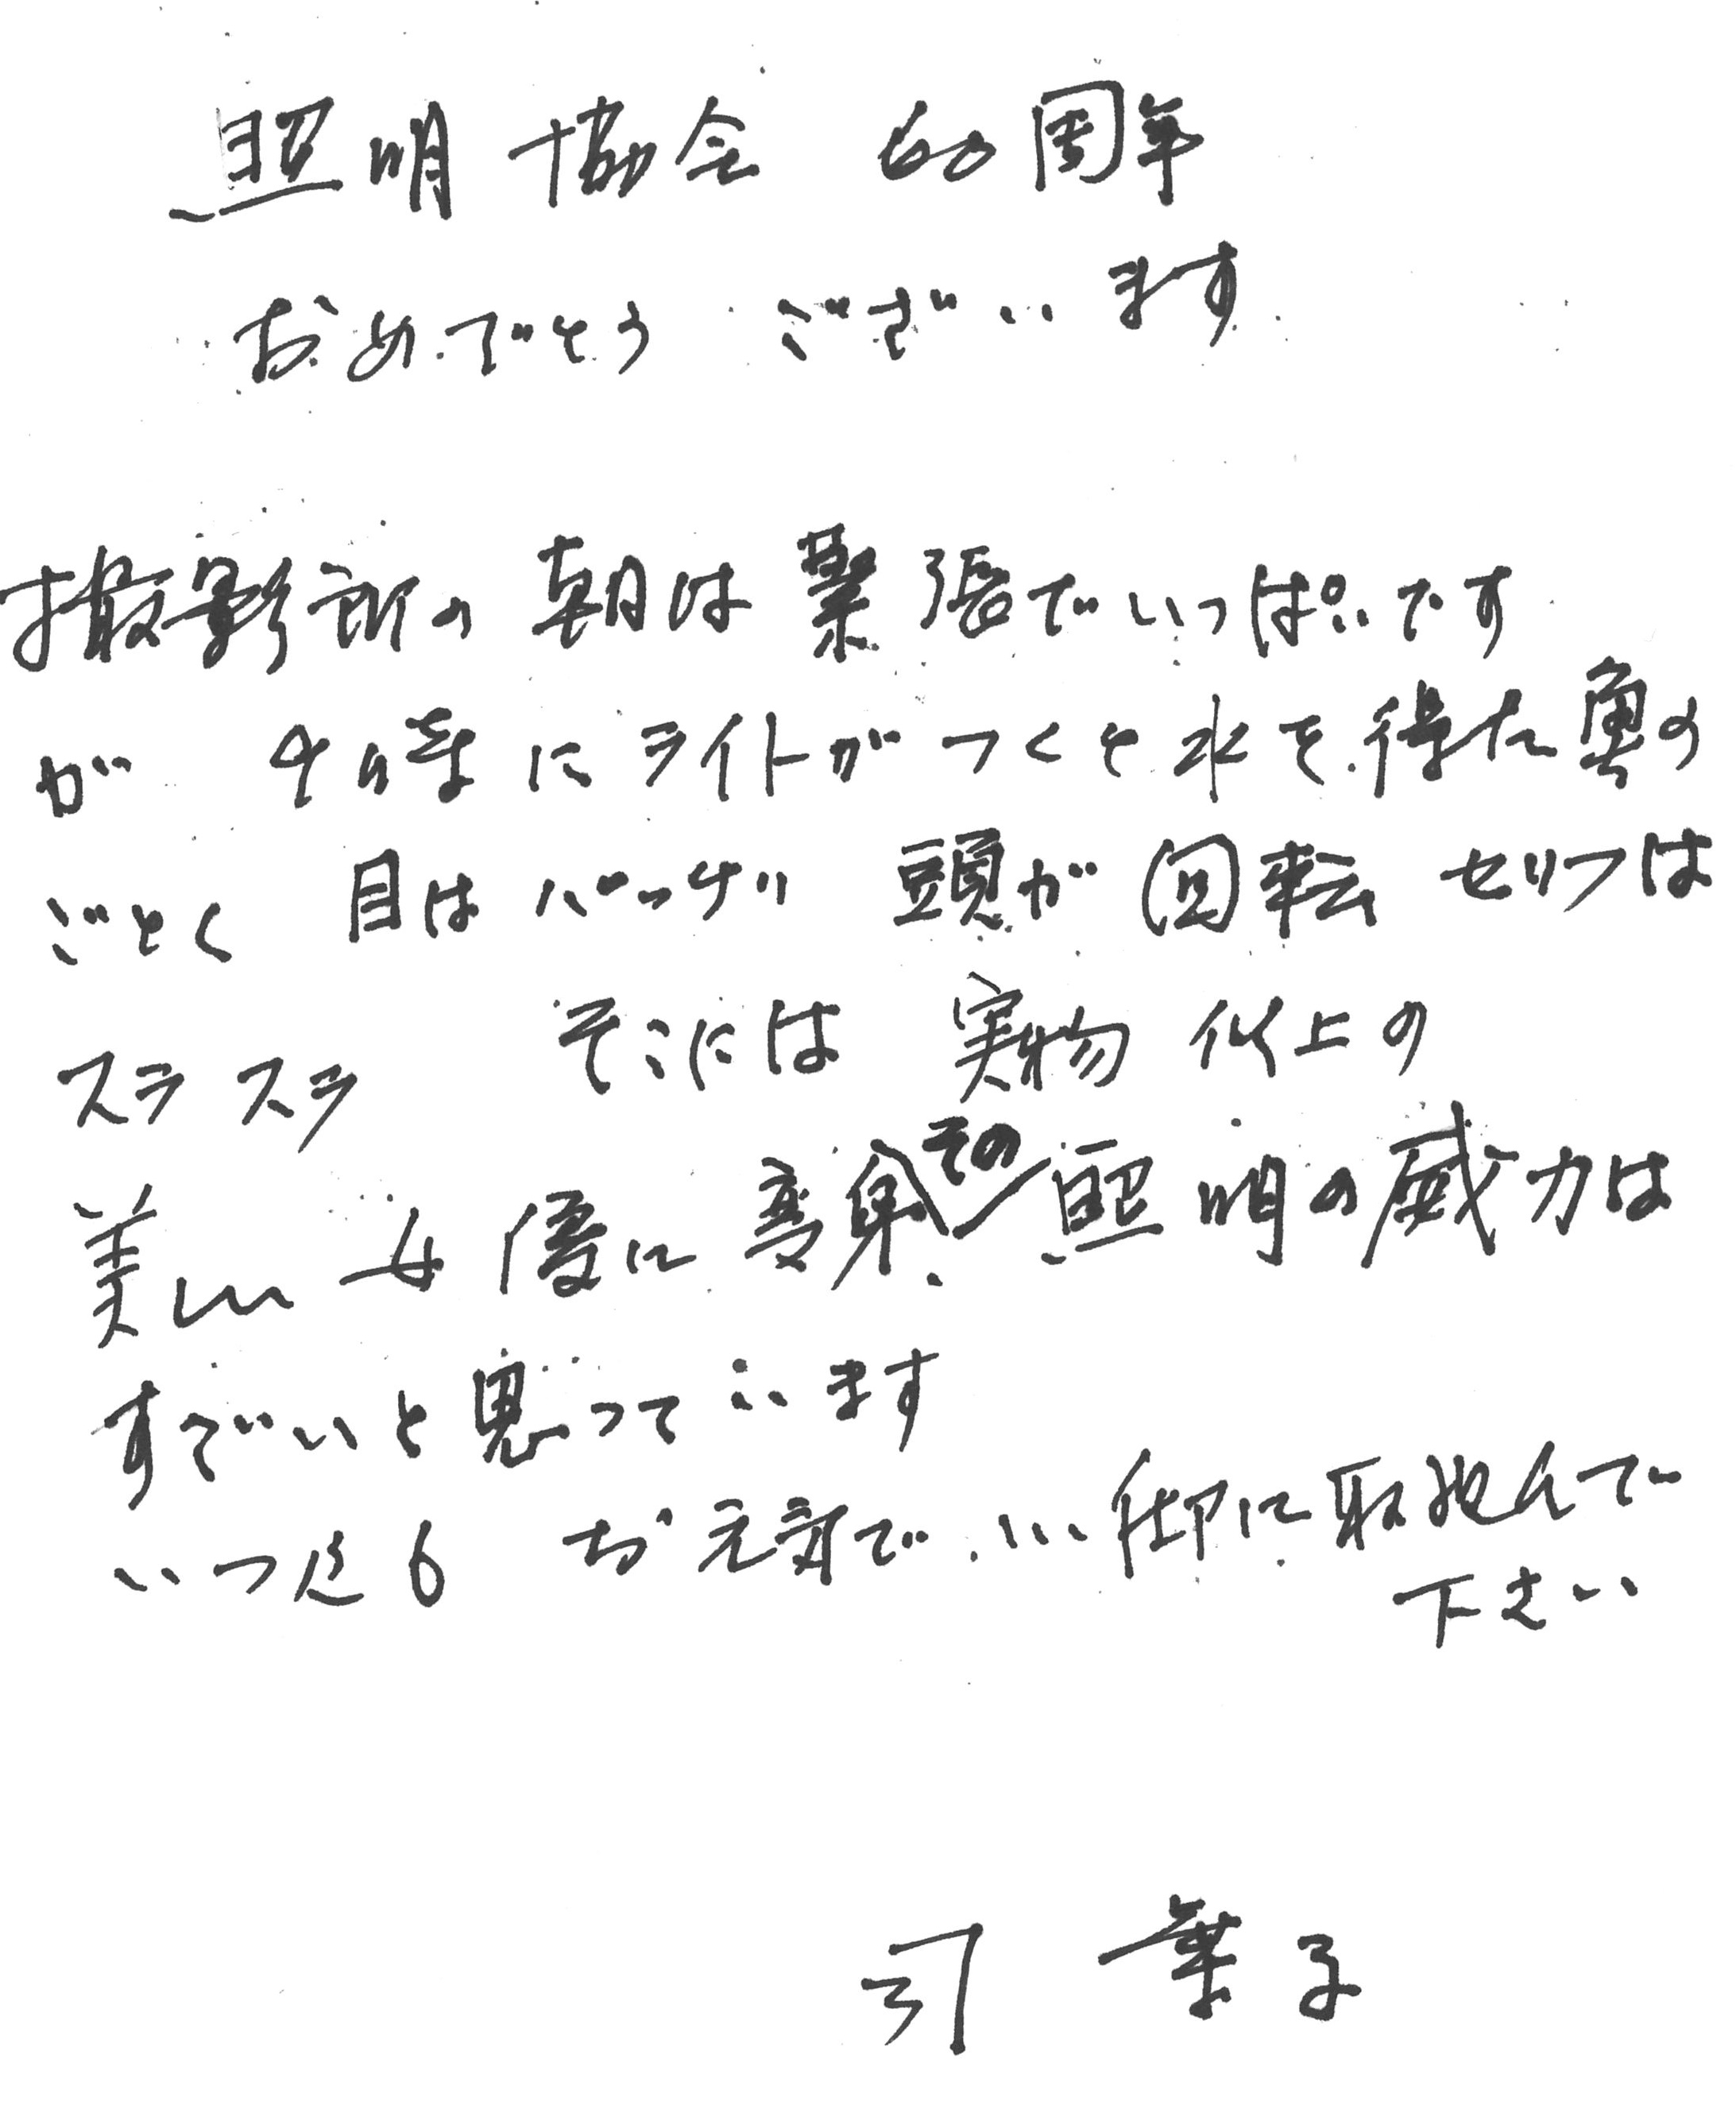 照明協会 60周年
おめでとう ございます
撮影所の 朝は 緊張でいっぱいです
が その時に ライトがつくと 水を得た魚の
ごとく 目は パッチリ 頭が 回転 セリフは
スラスラ そこには 実物 以上の
美しい 女優に 変身 その 照明の威力は
すごいと思っています
いつ迄も お元気で いい仕事に 取組んで
下さい
司 葉子